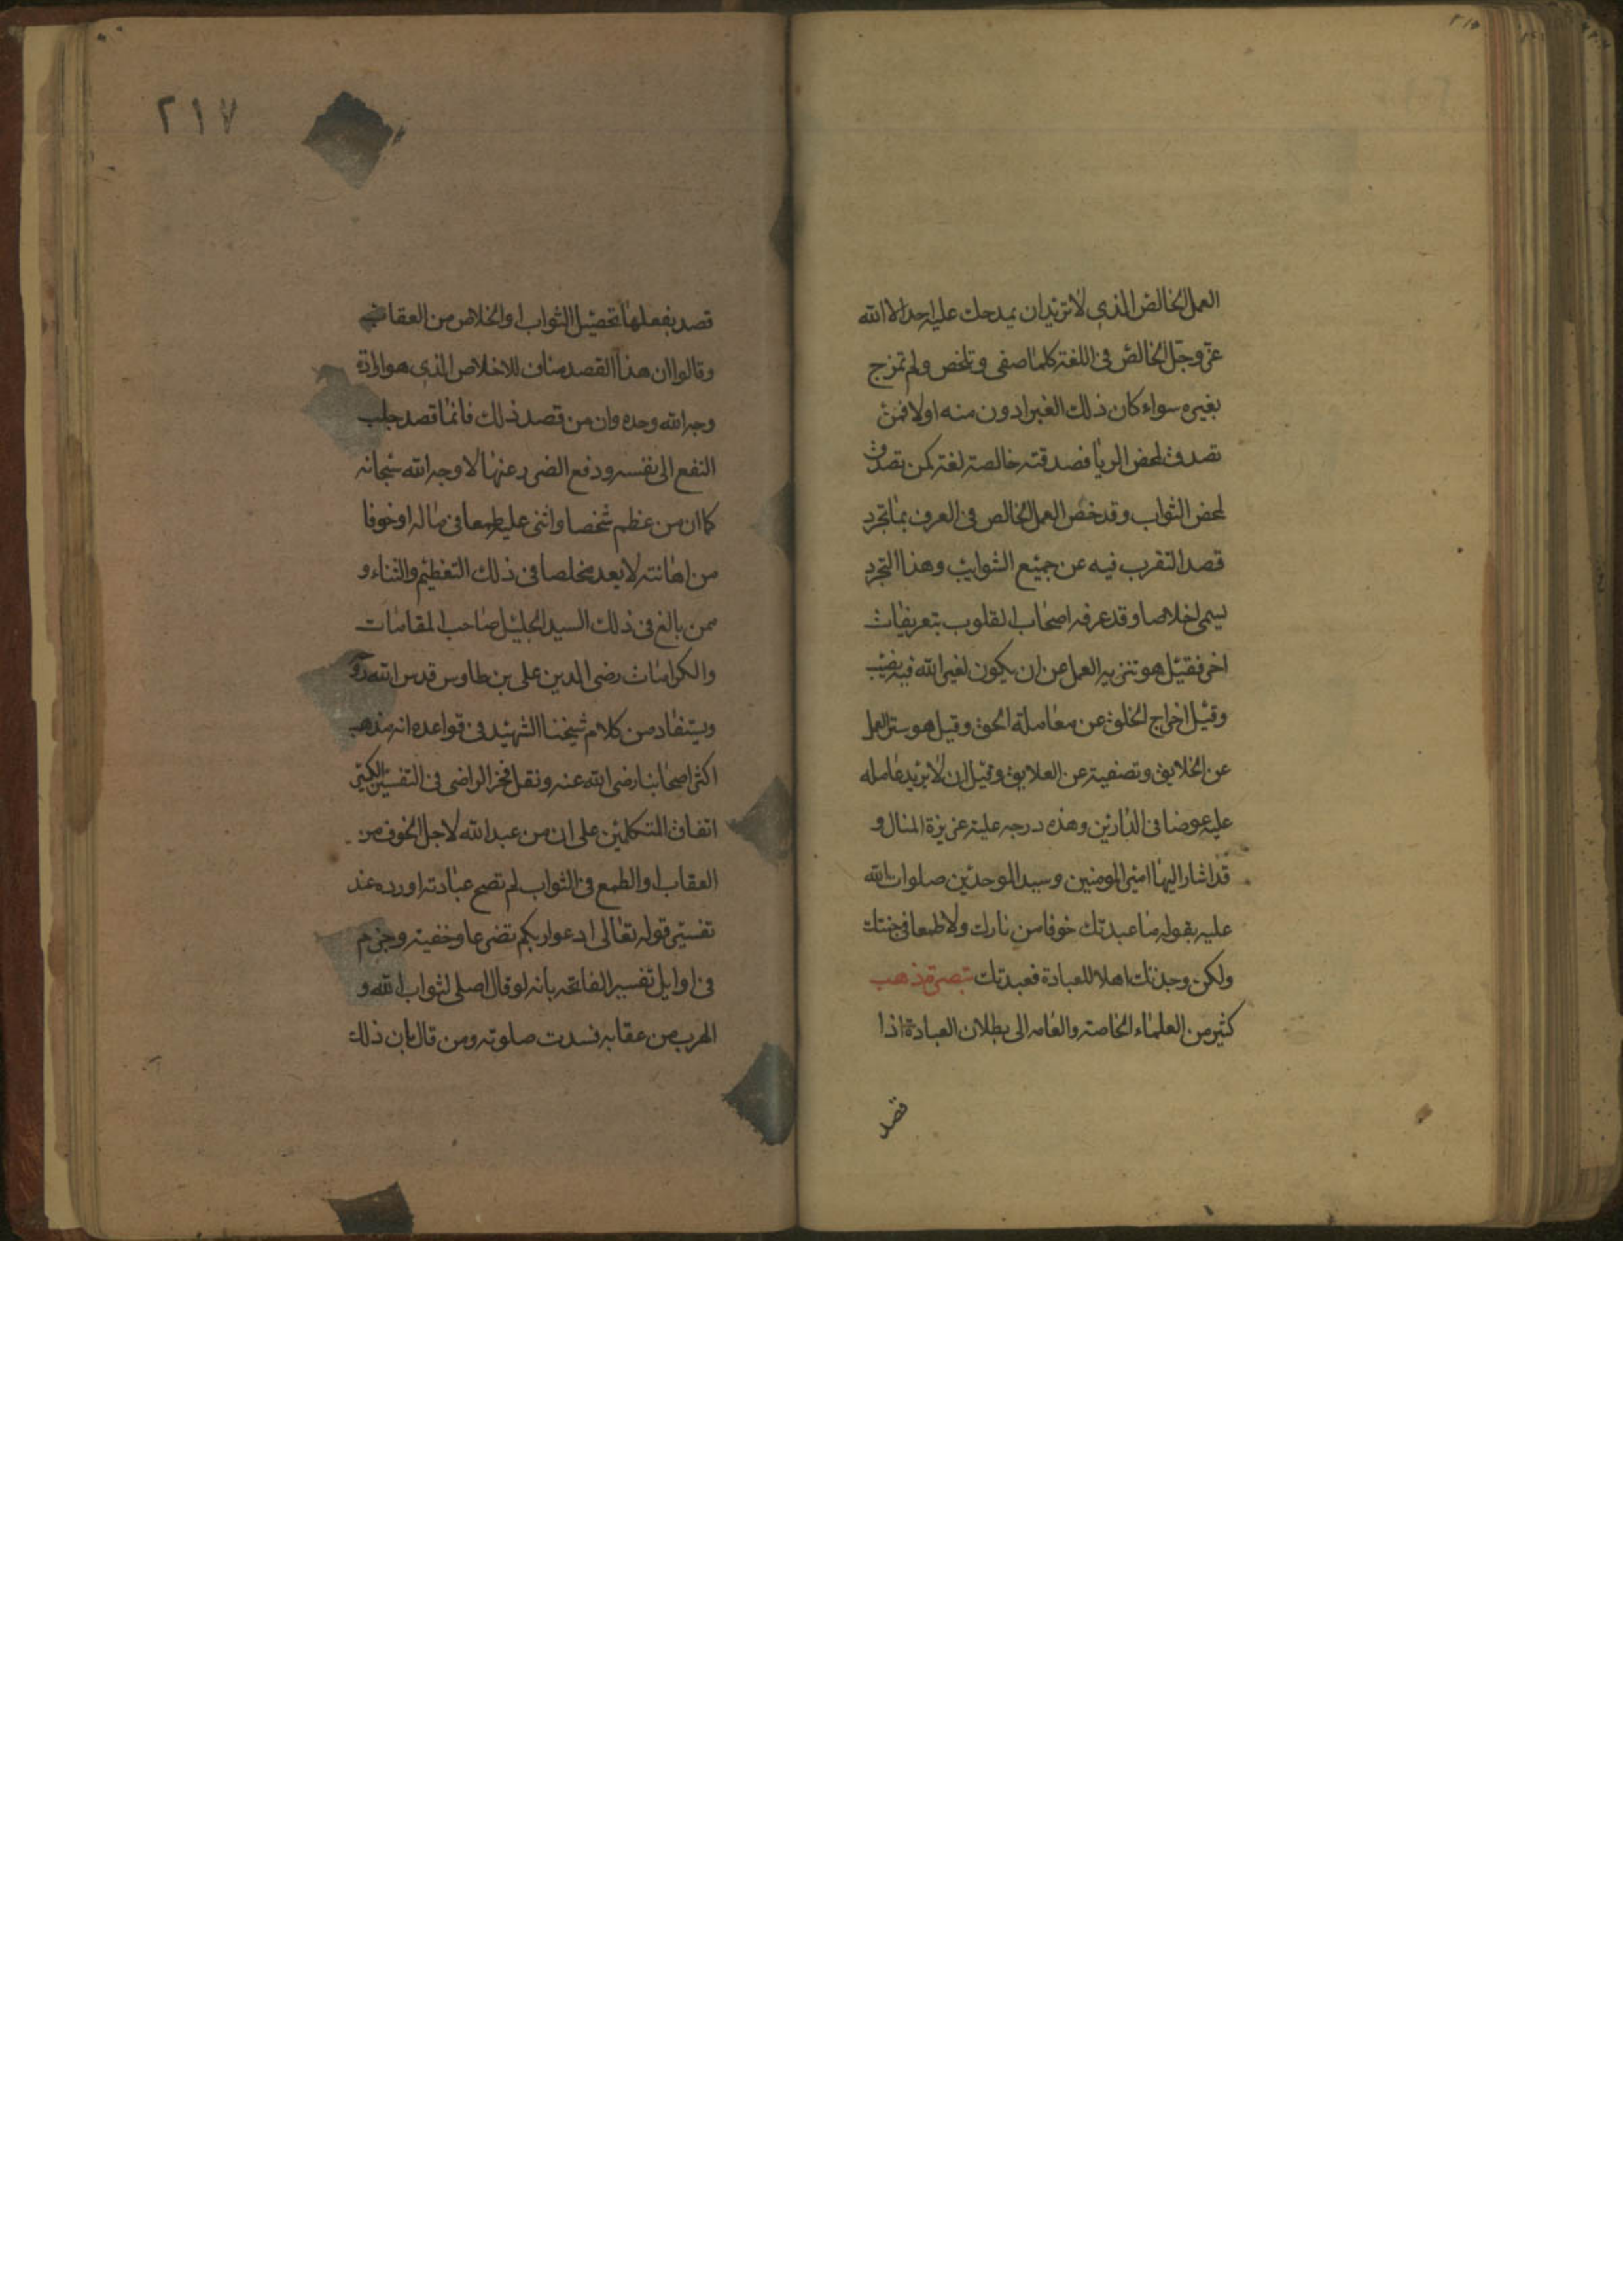 العمل الخالص الذي لا تريد ان يمدحك عليه احد الا الله
عز وجل الخالص في اللغة كلما صفى وتلخص ولم تمزج
بغيره سواء كان ذلك الغير ادون منه اولا فمن
تصدق لمحض الريا فصدقته خالصة لغة كمن تصدق
لمحض الثواب وقد خص العمل الخالص في العرف بما تجرد
قصد التقرب فيه عن جميع الشوايب وهذا التجرد
يسمى اخلاصا وقد عرفه اصحاب القلوب بتعريفات
اخر فقيل هو تنزيه العمل عن ان يكون لغير الله فيه نصيب
وقيل اخراج الخلق عن معاملة الحق وقيل هو ستر العمل
عن الخلايق وتصفيته عن العلايق وقيل ان لا يريد عامله
عليه عوضا في الدارين وهذه درجه علية عزيزة المنال و
قد اشار اليها امير المومنين وسيد الموحدين صلوات الله
عليه بقوله ما عبدتك خوفا من نارك ولا طمعا في جنتك
ولكن وجدتك اهلا للعبادة فعبدتك تبصرة ذهب
كثير من العلماء الخاصة والعامه الى بطلان العبادة اذا
قصد
٢١٧
قصد بفعلها تحصيل الثواب او الخلاص من العقاب
وقالوا ان هذا القصد مناف للاخلاص الذي هو ارادة
وجه الله وحده وان من قصد ذلك فانما قصد جلب
النفع الى نفسه ودفع الضرر عنها لا وجه الله سبحانه
كما ان من عظم شخصا واثنى عليه طمعا في ماله او خوفا
من اهانته لا يعد مخلصا في ذلك التعظيم والثناء و
ممن بالغ في ذلك السيد الجليل صاحب المقامات
والكرامات رضى الدين على بن طاوس قدس الله
ويستفاد من كلام شيخنا الشهيد في قواعده انه مذهب
اكثر اصحابنا رضى الله عنه ونقل فخر الراضى في التفسير الكبير
اتفاق المتكلمين على ان من عبد الله لاجل الخوف من
العقاب او الطمع في الثواب لم تصح عبادته اورده عند
تفسير قوله تعالى ادعوا ربكم تضرعا وخفية وجزم
في اوايل تفسير الفاتحه بانه لو قال اصلى لثواب الله و
الهرب من عقابه فسدت صلوته ومن قال بان ذلك